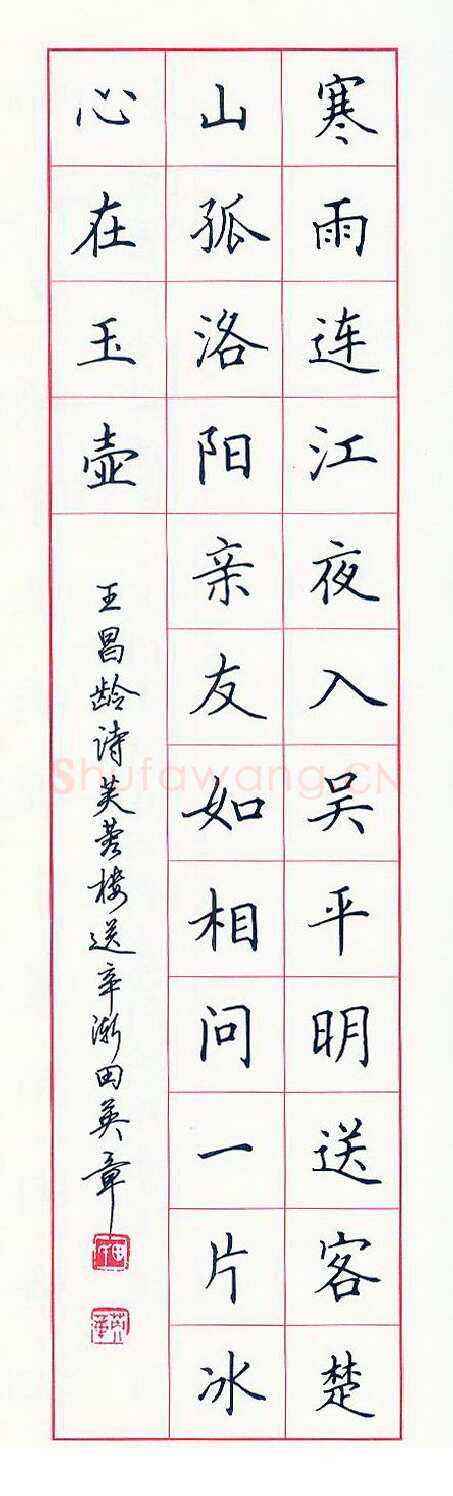 寒雨连江夜入吴平明送客楚
山孤洛阳亲友如相问一片冰
心在玉壶
王昌龄诗芙蓉楼送辛渐田英章
Shufawang.CN